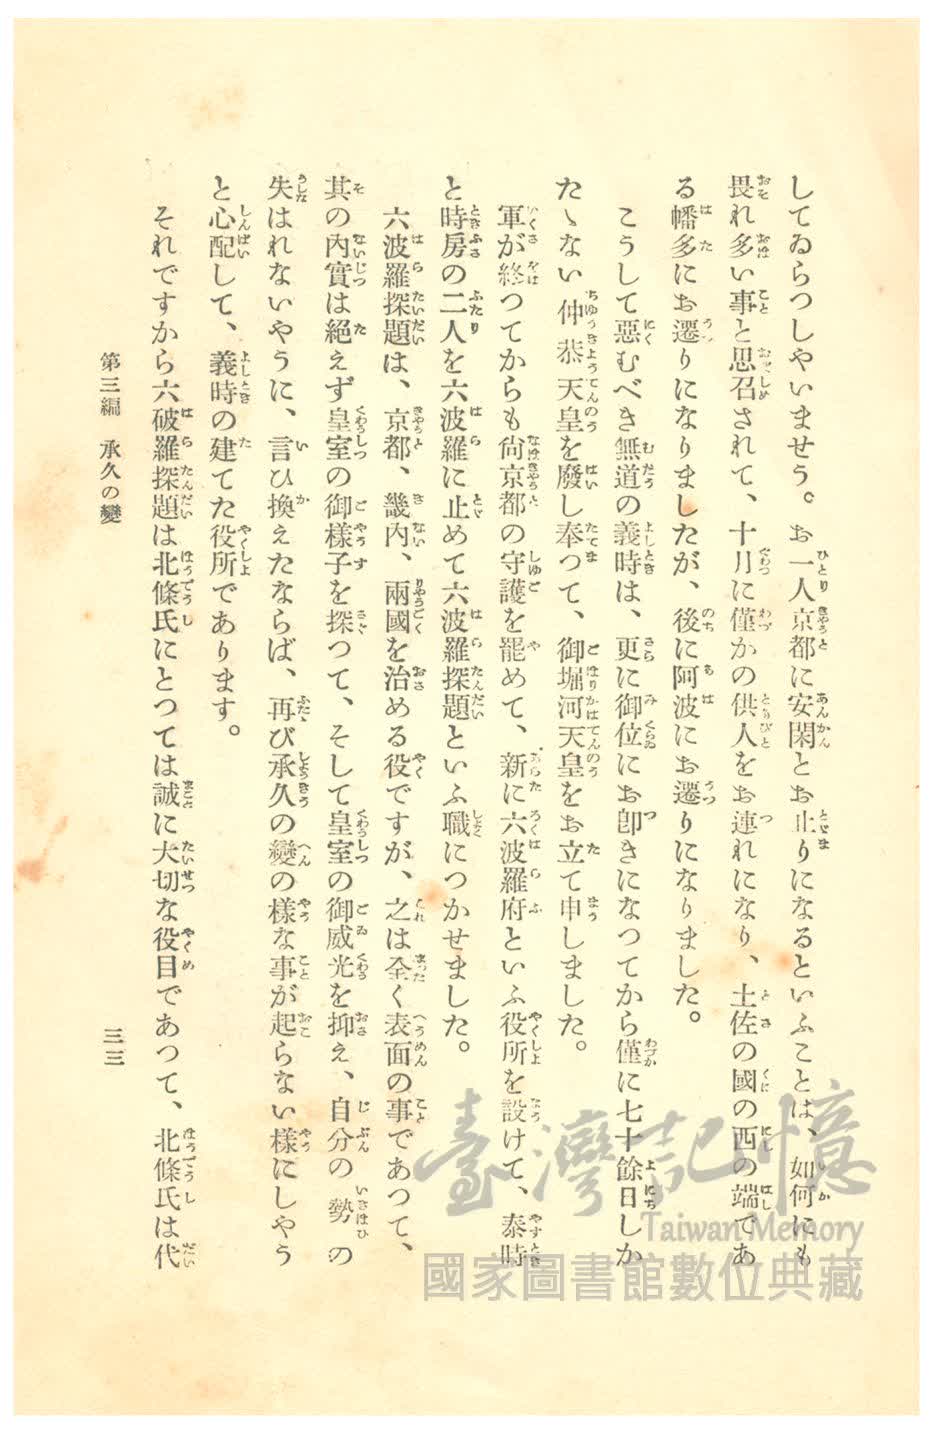 してゐらつしやいませう。お一人京都に安閑とお止りになるといふことは、如何にも
畏れ多い事と思召されて、十月に僅かの供人をお連れになり、土佐の國の西の端であ
る幡多にお遷りになりましたが、後に阿波にお遷りになりました。
こうして惡むべき無道の義時は、更に御位にお卽きになつてから僅に七十餘日しか
たゝない仲恭天皇を廢し奉つて、御堀河天皇をお立て申しました。
軍が終つてからも尙京都の守護を罷めて、新に六波羅府といふ役所を設けて、泰時
と時房の二人を六波羅に止めて六波羅探題といふ職につかせました。
六波羅探題は、京都、畿内、兩國を治める役ですが、之は全く表面の事であつて、
其の內實は絕えず皇室の御樣子を探つて、そして皇室の御威光を抑え、自分の勢の
失はれないやうに、言ひ換えたならば、再び承久の變の樣な事が起らない樣にしやう
と心配して、義時の建てた役所であります。
それですから六破羅探題は北條氏にとつては誠に大切な役目であつて、北條氏は代
第三編 承久の變
三三
臺灣記憶
Taiwan Memory
國家圖書館數位典藏